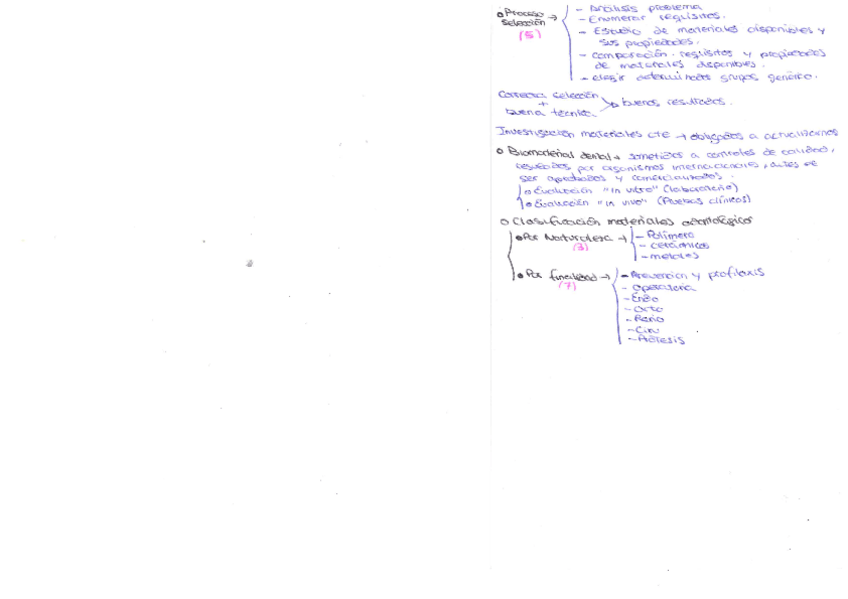 - Análisis problema
Proceso selección → - Enumerar requisitos.
(5) - Estudio de materiales disponibles y
sus propiedades.
- comparación requisitos y propiedades
de materiales disponibles.
- elegir determinados grupos genérico.
Correcta selección
+ > buenos resultados.
buena técnica
Investigación materiales cte → obligados a actualizarnos
Biomaterial dental → sometidos a controles de calidad,
regulados por organismos internacionales, antes de
ser aprobados y comercializados.
Evaluación "in vitro" (laboratorio)
Evaluación "in vivo" (Pruebas clínicas)
Clasificación materiales odontológicos
Por Naturaleza → - Polímero
(3) - cerámicos
- metales
Por finalidad → - Prevención y profilaxis
(7) - Operatoria
- Endo
- Orto
- Perio
- Ciru
- Prótesis